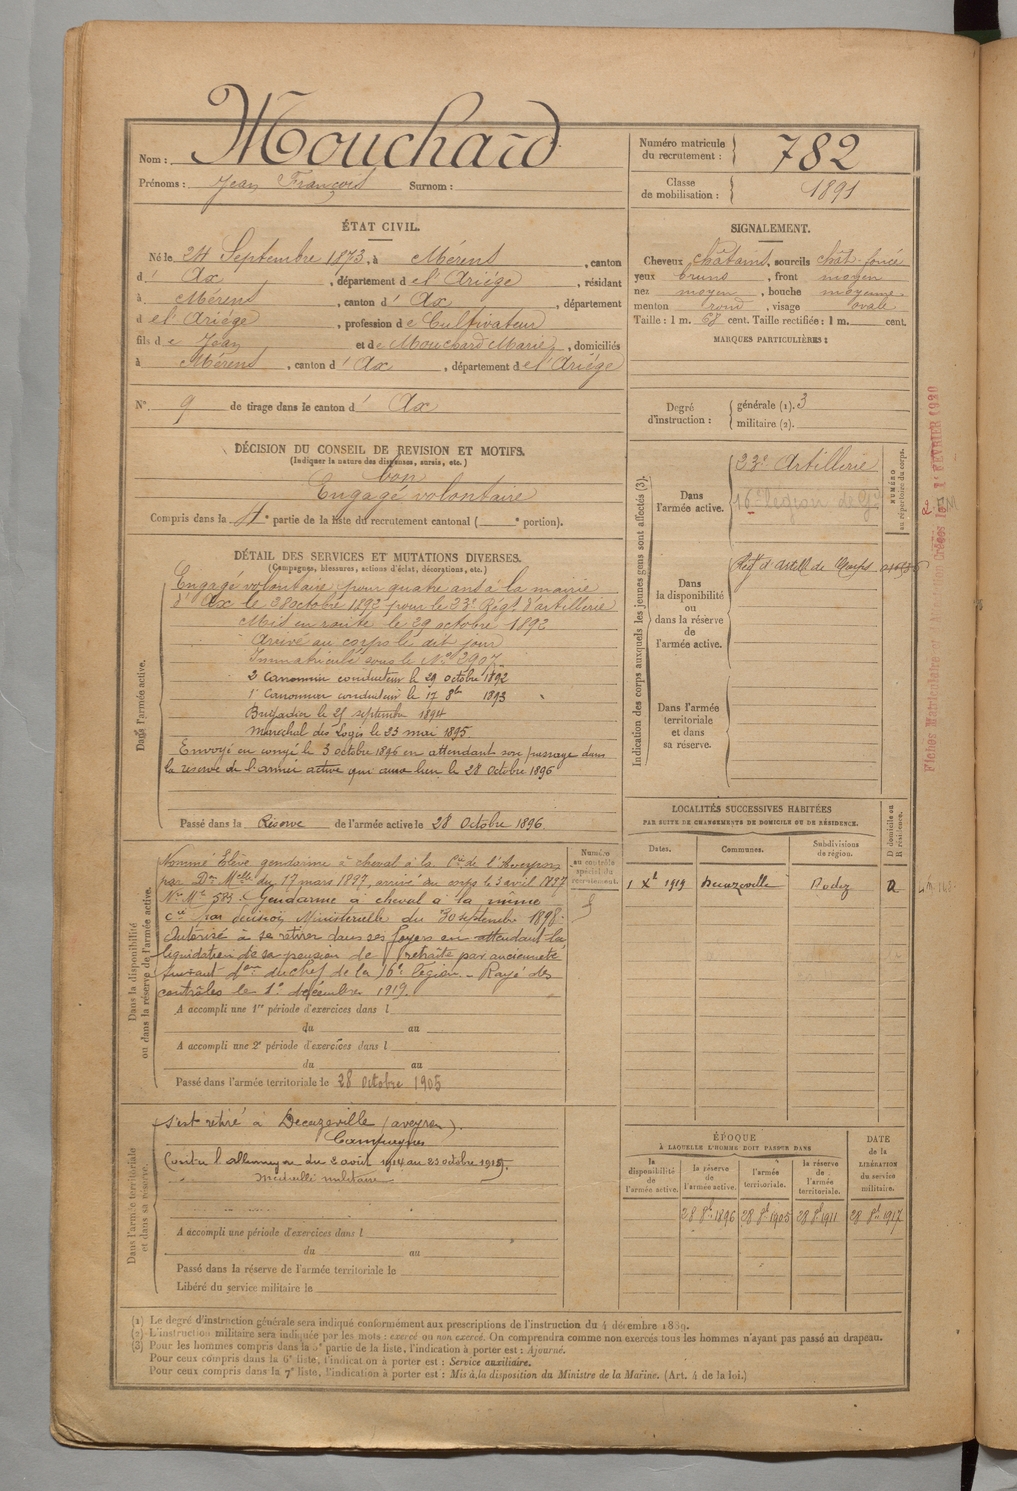 Nom : Mouchard
Prénoms : Jean François Surnom :
Numéro matricule du recrutement : 782
Classe de mobilisation : 1891
ÉTAT CIVIL.
Né le 24 Septembre 1873, à Mérens, canton
d' Ax, département de l'Ariège, résidant
à Mérens, canton d' Ax, département
de l'Ariège, profession de Cultivateur
fils de Jean et de Mouchard Marie, domiciliés
à Mérens, canton d' Ax, département de l'Ariège
N° 9 de tirage dans le canton d' Ax
SIGNALEMENT.
Cheveux châtains, sourcils chât-foncé
yeux bruns, front moyen
nez moyen, bouche moyenne
menton rond, visage ovale
Taille : 1 m. 67 cent. Taille rectifiée : 1 m. cent.
MARQUES PARTICULIÈRES :
Degré d'instruction : générale (1). 3
militaire (2).
DÉCISION DU CONSEIL DE REVISION ET MOTIFS.
(Indiquer la nature des dispenses, sursis, etc.)
bon
Engagé volontaire
Compris dans la 4e partie de la liste du recrutement cantonal ( e portion).
DÉTAIL DES SERVICES ET MUTATIONS DIVERSES.
(Campagnes, blessures, actions d'éclat, décorations, etc.)
Dans l'armée active.
Engagé volontaire pour quatre ans à la mairie
d'Ax le 28 octobre 1892 pour le 23e Régt d'artillerie
Mis en route le 29 octobre 1892
Arrivé au corps le dit jour
Immatriculé sous le No 3907
2 Canonnier conducteur le 29 octobre 1892
1r Canonnier conducteur le 17 8bre 1893
Brigadier le 25 septembre 1894
Maréchal des Logis le 23 mai 1895
Envoyé en congé le 3 octobre 1896 en attendant son passage dans
la réserve de l'armée active qui aura lieu le 28 Octobre 1896
Passé dans la Réserve de l'armée active le 28 Octobre 1896
Indication des corps auxquels les jeunes gens sont affectés (3).
Dans l'armée active.
23e Artillerie
16e légion de Gie
NUMÉRO au répertoire du corps.
Dans la disponibilité ou dans la réserve de l'armée active.
Régt d'Artill de Corps
Dans l'armée territoriale et dans sa réserve.
Fiches Matricules
FÉVRIER 1920
Dans la disponibilité ou dans la réserve de l'armée active.
Nommé Elève gendarme à cheval à la Cie de l'Aveyron
par Don Melle du 17 mars 1897, arrivé au corps le 3 avril 1897
No Mle 583. Gendarme à cheval à la même
Cie par décision Ministerielle du 30 septembre 1898.
Autorisé à se retirer dans ses foyers en attendant la
liquidation de sa pension de retraite par ancienneté
suivant du chef de la 16e légion - Rayé des
contrôles le 1er décembre 1919.
Numéro au contrôle spécial du recrutement.
A accompli une 1re période d'exercices dans l
du au
A accompli une 2e période d'exercices dans l
du au
Passé dans l'armée territoriale le 28 Octobre 1905
LOCALITÉS SUCCESSIVES HABITÉES
PAR SUITE DE CHANGEMENTS DE DOMICILE OU DE RÉSIDENCE.
Dates. Communes. Subdivisions de région. D domicile ou R résidence.
1 Xbre 1919 Decazeville Rodez
Dans l'armée territoriale et dans sa réserve.
S'est retiré à Decazeville (aveyron).
Campagnes
Contre l'allemagne du 2 août 1914 au 23 octobre 1919.
Médaille militaire
A accompli une période d'exercices dans l
du au
Passé dans la réserve de l'armée territoriale le
Libéré du service militaire le
ÉPOQUE
À LAQUELLE L'HOMME DOIT PASSER DANS
la disponibilité de l'armée active. la réserve de l'armée active. l'armée territoriale. la réserve de l'armée territoriale. DATE de la LIBÉRATION du service militaire.
28 8bre 1896 28 8bre 1905 28 8bre 1911 28 8bre 1917
(1) Le degré d'instruction générale sera indiqué conformément aux prescriptions de l'instruction du 4 décembre 1889.
(2) L'instruction militaire sera indiquée par les mots : exercé ou non exercé. On comprendra comme non exercés tous les hommes n'ayant pas passé au drapeau.
(3) Pour les hommes compris dans la 5e partie de la liste, l'indication à porter est : Ajourné.
Pour ceux compris dans la 6e liste, l'indication à porter est : Service auxiliaire.
Pour ceux compris dans la 7e liste, l'indication à porter est : Mis à la disposition du Ministre de la Marine. (Art. 4 de la loi.)